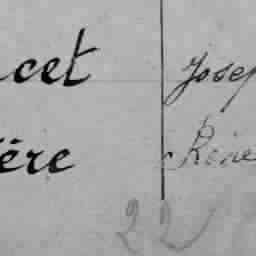 cet Josep
ère René
22